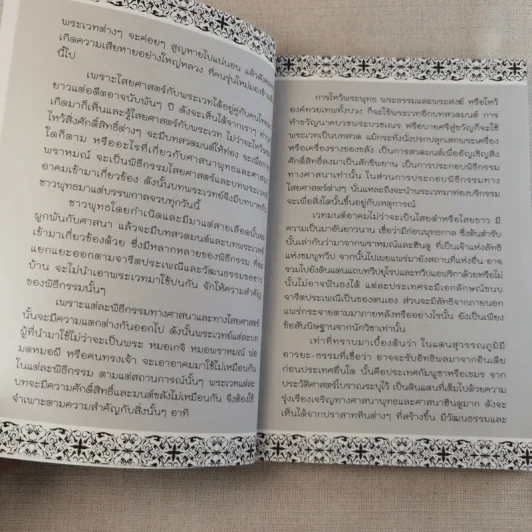 พระเวทต่างๆ จะค่อยๆ สูญหายไปแน่นอน แล้ว
เกิดความเสียหายอย่างใหญ่หลวง ที่คนรุ่นใหม่มองข้าม
นี้ไป
เพราะไสยศาสตร์กับพระเวทได้อยู่คู่กับคน
ยาวแต่อดีตอาจนับพันๆ ปี ดังจะเห็นได้จากเราๆ
เกิดมาก็เห็นและรู้ไสยศาสตร์กับพระเวท ไม่ว่าจะไหว้
ไหว้สิ่งศักดิ์สิทธิ์ต่างๆ จะมีบทสวดมนต์ให้ท่อง จะเพื่อ
ใดก็ตาม หรืออะไรที่เกี่ยวกับศาสนาพุทธและศาสนา
พราหมณ์ จะเป็นพิธีกรรมไสยศาสตร์และบทพระเวท
อาคมเข้ามาเกี่ยวข้อง ดังนั้นบทพระเวทย์จึงมีบทบาท
ชาวพุทธมาแต่บรรพกาลจวบทุกวันนี้
ชาวพุทธโดยกำเนิดและมีมาแต่สายเลือดนั้น
ผูกพันกับศาสนา แล้วจะมีบทสวดมนต์และบทพระเวท
เข้ามาเกี่ยวข้องด้วย ซึ่งมีหลากหลายของพิธีกรรม ที่จะ
แยกแยะออกตามจารีตประเพณีและวัฒนธรรมของชาว
บ้าน จะไม่นำเอาพระเวทมาใช้ปนกัน จักให้ความสำคัญ
ของพิธีกรรมนั้นๆ
เพราะแต่ละพิธีกรรมทางศาสนาและทางไสยศาสตร์
นั้นจะมีความแตกต่างกันออกไป ดังนั้นพระเวทย์แต่ละบท
ผู้ที่นำมาใช้ไม่ว่าจะเป็นพระ หมอเกจิ หมอพราหมณ์ พ่อ
มดหมอผี หรือคนทรงเจ้า จะเอาอาคมมาใช้ไม่เหมือนกัน
ในแต่ละพิธีกรรม ตามแต่สถานการณ์นั้นๆ พระเวทแต่ละ
บทจะมีความศักดิ์สิทธิ์และมนต์ขลังไม่เหมือนกัน จึงต้องใช้
จำเพาะตามความสำคัญกับสิ่งนั้นๆ อาทิ
การไหว้พระพุทธ พระธรรมและพระสงฆ์ หรือไหว้
องค์ทวยเทพทั้งปวง ก็จะใช้พระเวทอีกบทสวดมนต์ การ
ทำขวัญนาคบวชพระบวชเณร หรือบายศรีสู่ขวัญก็จะใช้
พระเวทเป็นบทสวด แม้กระทั่งนั่งปรกปลุกเสกพระเครื่อง
หรือเครื่องรางของขลัง เป็นการสวดมนต์เพื่ออัญเชิญสิ่ง
ศักดิ์สิทธิ์ลงมาเป็นสักขีพยาน เป็นการประกอบพิธีกรรม
ทางศาสนาเท่านั้น ในส่วนการประกอบพิธีกรรมทาง
ไสยศาสตร์ต่างๆ นั่นแหละถึงจะนำพระเวทมาท่องบริกรรม
จะเพื่อสิ่งใดนั้นขึ้นอยู่กับเหตุการณ์
เวทมนต์อาคมไม่ว่าจะเป็นไสยดำหรือไสยขาว มี
ความเป็นมาอันยาวนาน เชื่อว่ามีก่อนพุทธกาล ซึ่งต้นตำรับ
นั้นเล่ากันว่ามาจากพราหมณ์และฮินดู ที่เป็นเจ้าแห่งลัทธิ
แห่งชมพูทวีป จากนั้นไปเผยแพร่มายังสถานที่แห่งอื่น อาจ
รวมไปยังดินแดนแถบทวีปยุโรปและทวีปแอฟริกาด้วยหรือไม่
นั้นไม่อาจฟันธงได้ แต่ละประเทศจะมีเอกลักษณ์ขนบ
จารีตประเพณีเป็นของตนเอง ส่วนจะมีลัทธิจากภายนอก
แพร่กระจายตามมาภายหลังหรืออย่างไรนั้น ยังเป็นเพียง
ข้อสันนิษฐานจากนักวิชาเท่านั้น
เท่าที่ทราบมาเบื้องต้นว่า ในแดนสุวรรณภูมิมี
อารยะ-ธรรมที่เชื่อว่า อาจจะรับอิทธิพลมาจากอินเดีย
ก่อนประเทศอื่นใด นั่นคือประเทศกัมพูชาหรือเขมร จาก
ประวัติศาสตร์โบราณระบุไว้ เป็นดินแดนที่เต็มไปด้วยความ
รุ่งเรืองเจริญทางศาสนาพุทธและศาสนาฮินดูมาก ดังจะ
เห็นได้จากปราสาทหินต่างๆ ที่สร้างขึ้น มีวัฒนธรรมและ